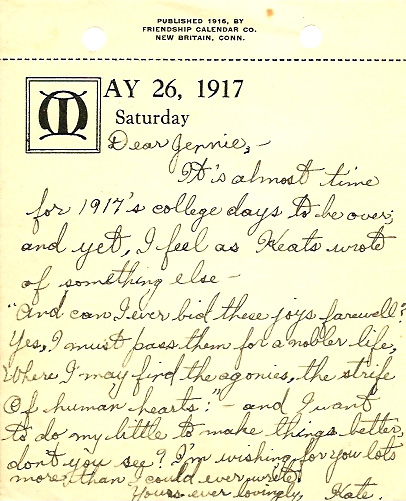 PUBLISHED 1916, BY
FRIENDSHIP CALENDAR CO.
NEW BRITAIN, CONN.
MAY 26, 1917
Saturday
Dear Jennie,-
It's almost time
for 1917's college days to be over;
and yet, I feel as Keats wrote
of something else-
"And can I ever bid these joys farewell?
Yes, I must pass them for a nobler life,
Where I may find the agonies, the strife
Of human hearts:"- and I want
to do my little to make things better,
don't you see? I'm wishing for you lots
more than I could ever write.
Yours ever lovingly, Kate.